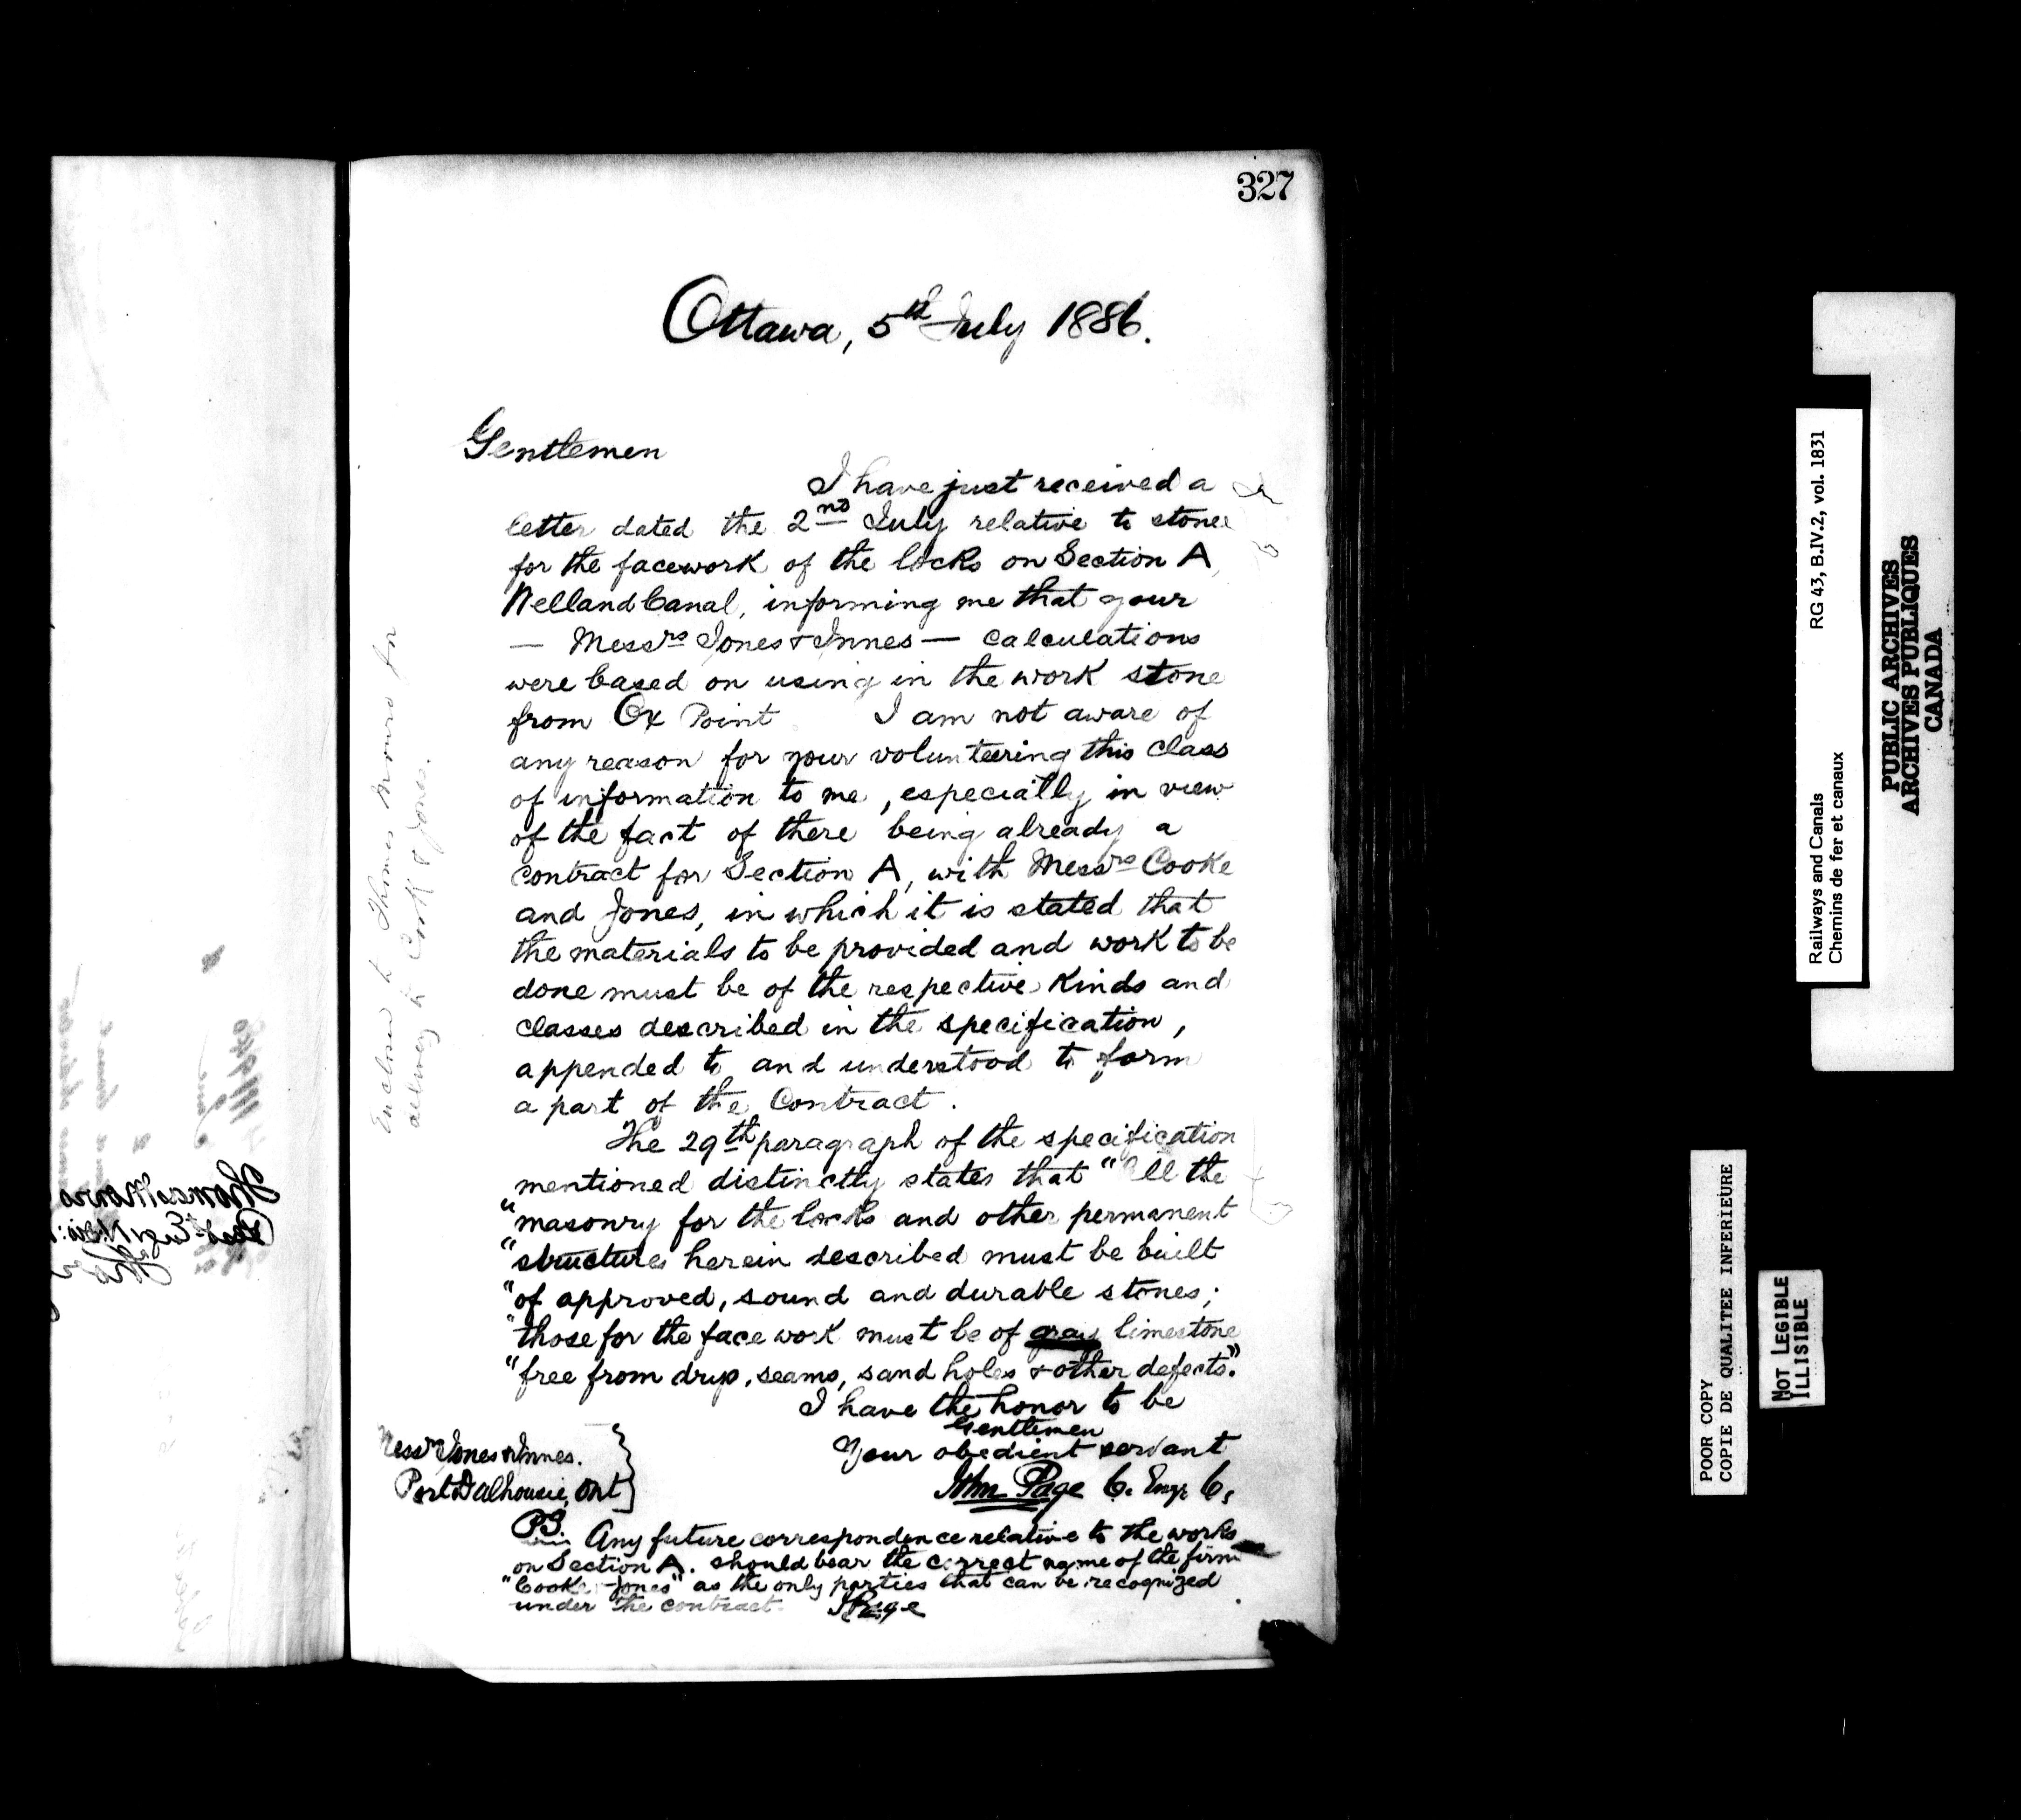 327
Ottawa, 5th July 1886.
Gentlemen
I have just received a
letter dated the 2nd July relative to stone
for the facework of the locks on Section A,
Welland Canal, informing me that your
— Messrs Jones & Innes — calculations
were based on using in the work stone
from Ox Point I am not aware of
any reason for your volunteering this class
of information to me, especially in view
of the fact of there being already a
contract for Section A, with Messrs Cooke
and Jones, in which it is stated that
the materials to be provided and work to be
done must be of the respective kinds and
classes described in the specification,
appended to and understood to form
a part of the Contract.
The 29th paragraph of the specification
mentioned distinctly states that "All the
"masonry for the locks and other permanent
"structures herein described must be built
"of approved, sound and durable stones;
"those for the face work must be of gray limestone
"free from drys, seams, sand holes & other defects."
I have the honor to be
Gentlemen
Your obedient servant
John Page C. Engr C.
Messrs Jones & Innes.
Port Dalhousie, Ont
P.S. Any future correspondence relative to the works
on Section A. should bear the correct name of the firm
"Cooke & Jones" as the only parties that can be recognized
under the contract. JPage
Enclosed to Thomas Monro for
delivery to Cook & Jones.
Thomas Monro
Railways and Canals RG 43, B.IV.2, vol. 1831
Chemins de fer et canaux
PUBLIC ARCHIVES
ARCHIVES PUBLIQUES
CANADA
POOR COPY
COPIE DE QUALITEE INFERIEURE
NOT LEGIBLE
ILLISIBLE